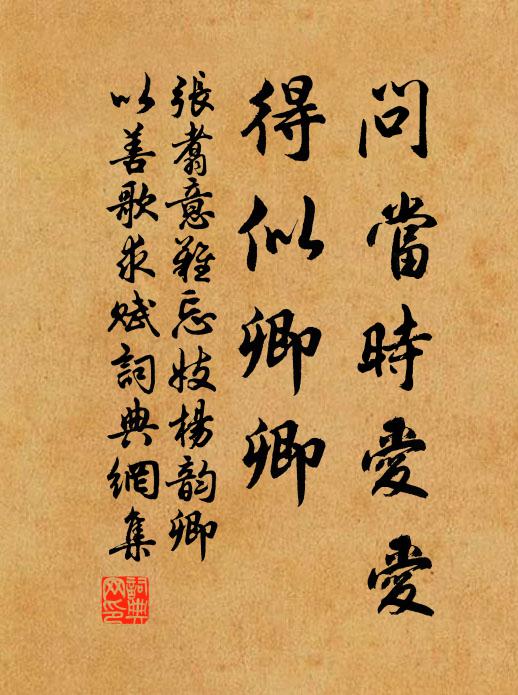 問當時愛愛
得似卿卿
張翥意難忘妓楊韵卿
以善歌求賦詞典網集
詞典網印